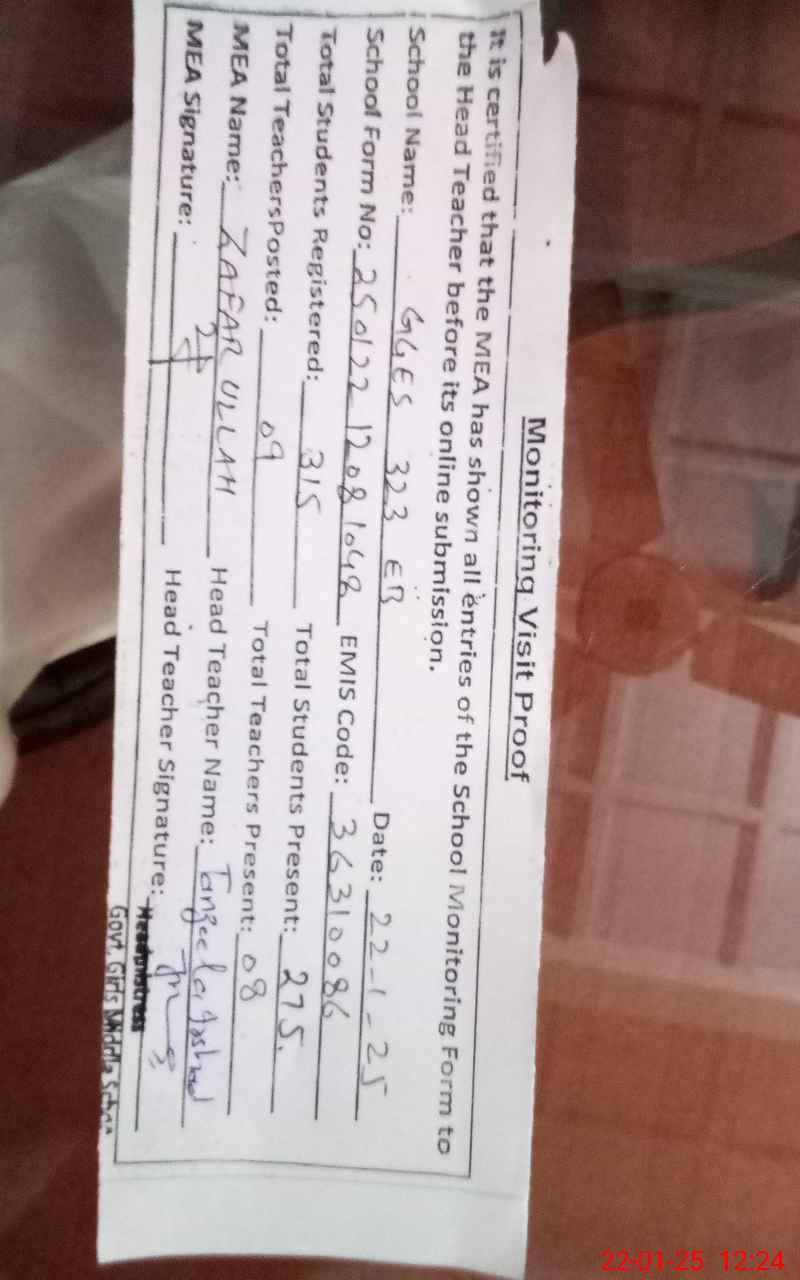 Monitoring Visit Proof
It is certified that the MEA has shown all entries of the School Monitoring Form to
the Head Teacher before its online submission.
School Name: GGES 323 EB Date: 22-1-25
School Form No: 250122 12081048 EMIS Code: 36310086
Total Students Registered: 315 Total Students Present: 275.
Total TeachersPosted: 09 Total Teachers Present: 08
MEA Name: ZAFAR ULLAH Head Teacher Name: Tanzeela Arshad
MEA Signature: Head Teacher Signature:
Headmistress
Govt. Girls Middle School
22-01-25 12:24